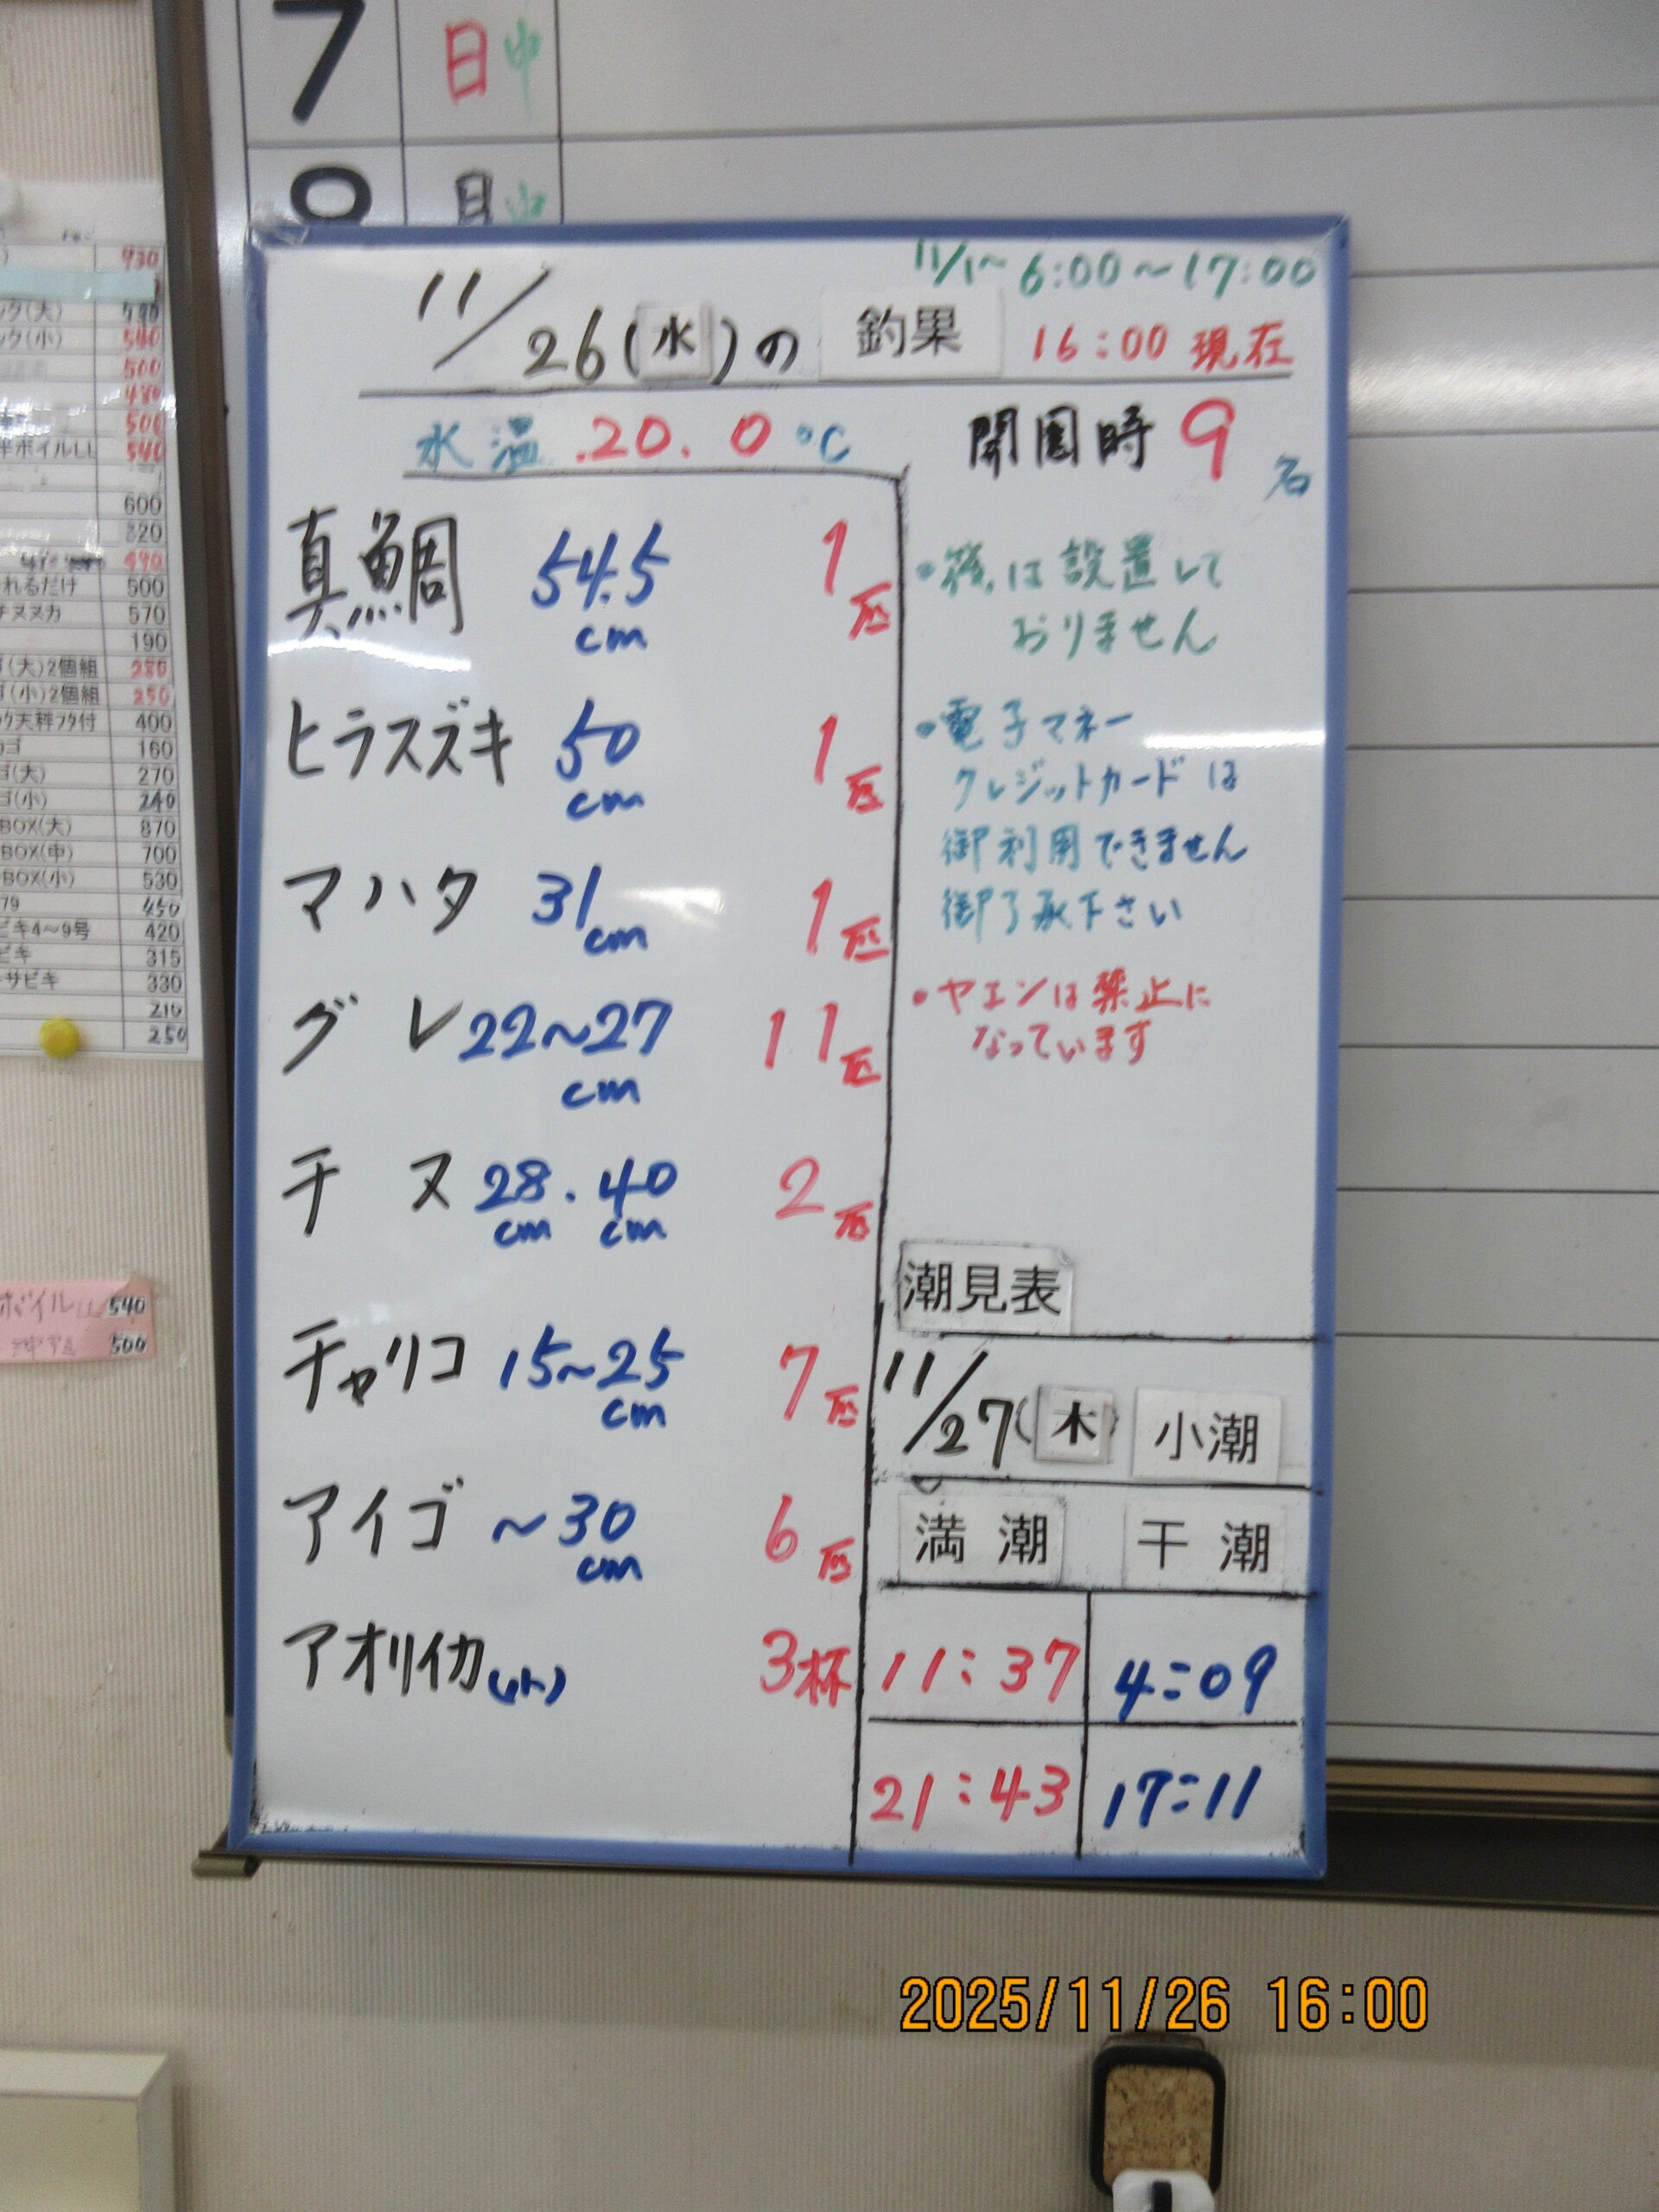 7 日 中
8 日 中
11/1~ 6:00~17:00
11/26(水)の 釣果 16:00 現在
水温 20.0℃ 開園時 9名
真鯛 54.5cm 1匹
ヒラスズキ 50cm 1匹
マハタ 31cm 1匹
グレ 22~27cm 11匹
チヌ 28cm・40cm 2匹
チャリコ 15~25cm 7匹
アイゴ ~30cm 6匹
アオリイカ(小) 3杯
は設置して
おりません
・電子マネー
クレジットカードは
御利用できません
御了承下さい
・ヤエンは禁止に
なっています
潮見表
11/27(木) 小潮
満潮 干潮
11:37 4:09
21:43 17:11
930
ック(大) 590
ック(小) 540
500
480
500
半ボイルLL 540
600
320
490
れるだけ 500
チヌヌカ 570
190
(大)2個組 280
(小)2個組 250
ック天秤フタ付 400
ゴ 160
ゴ(大) 270
ゴ(小) 240
BOX(大) 870
BOX(中) 700
BOX(小) 530
79 450
ビキ4~9号 420
ビキ 315
サビキ 330
210
250
ボイルLL 540
500
2025/11/26 16:00